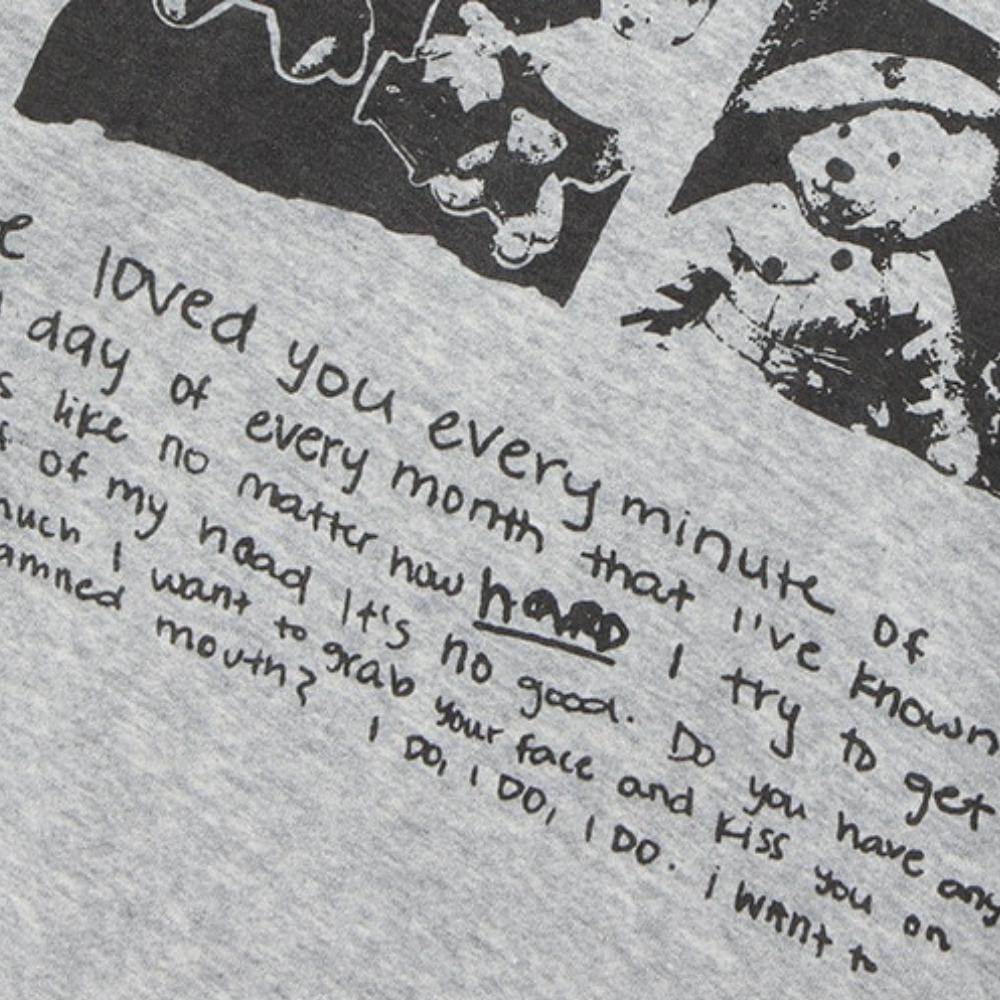 e loved you every minute of
day of every month that I've known
s like no matter how HARD I try to get
of my head It's no good. Do you have any
much I want to grab your face and kiss you on
amned mouth? I DO, I DO, I DO. i WANt to